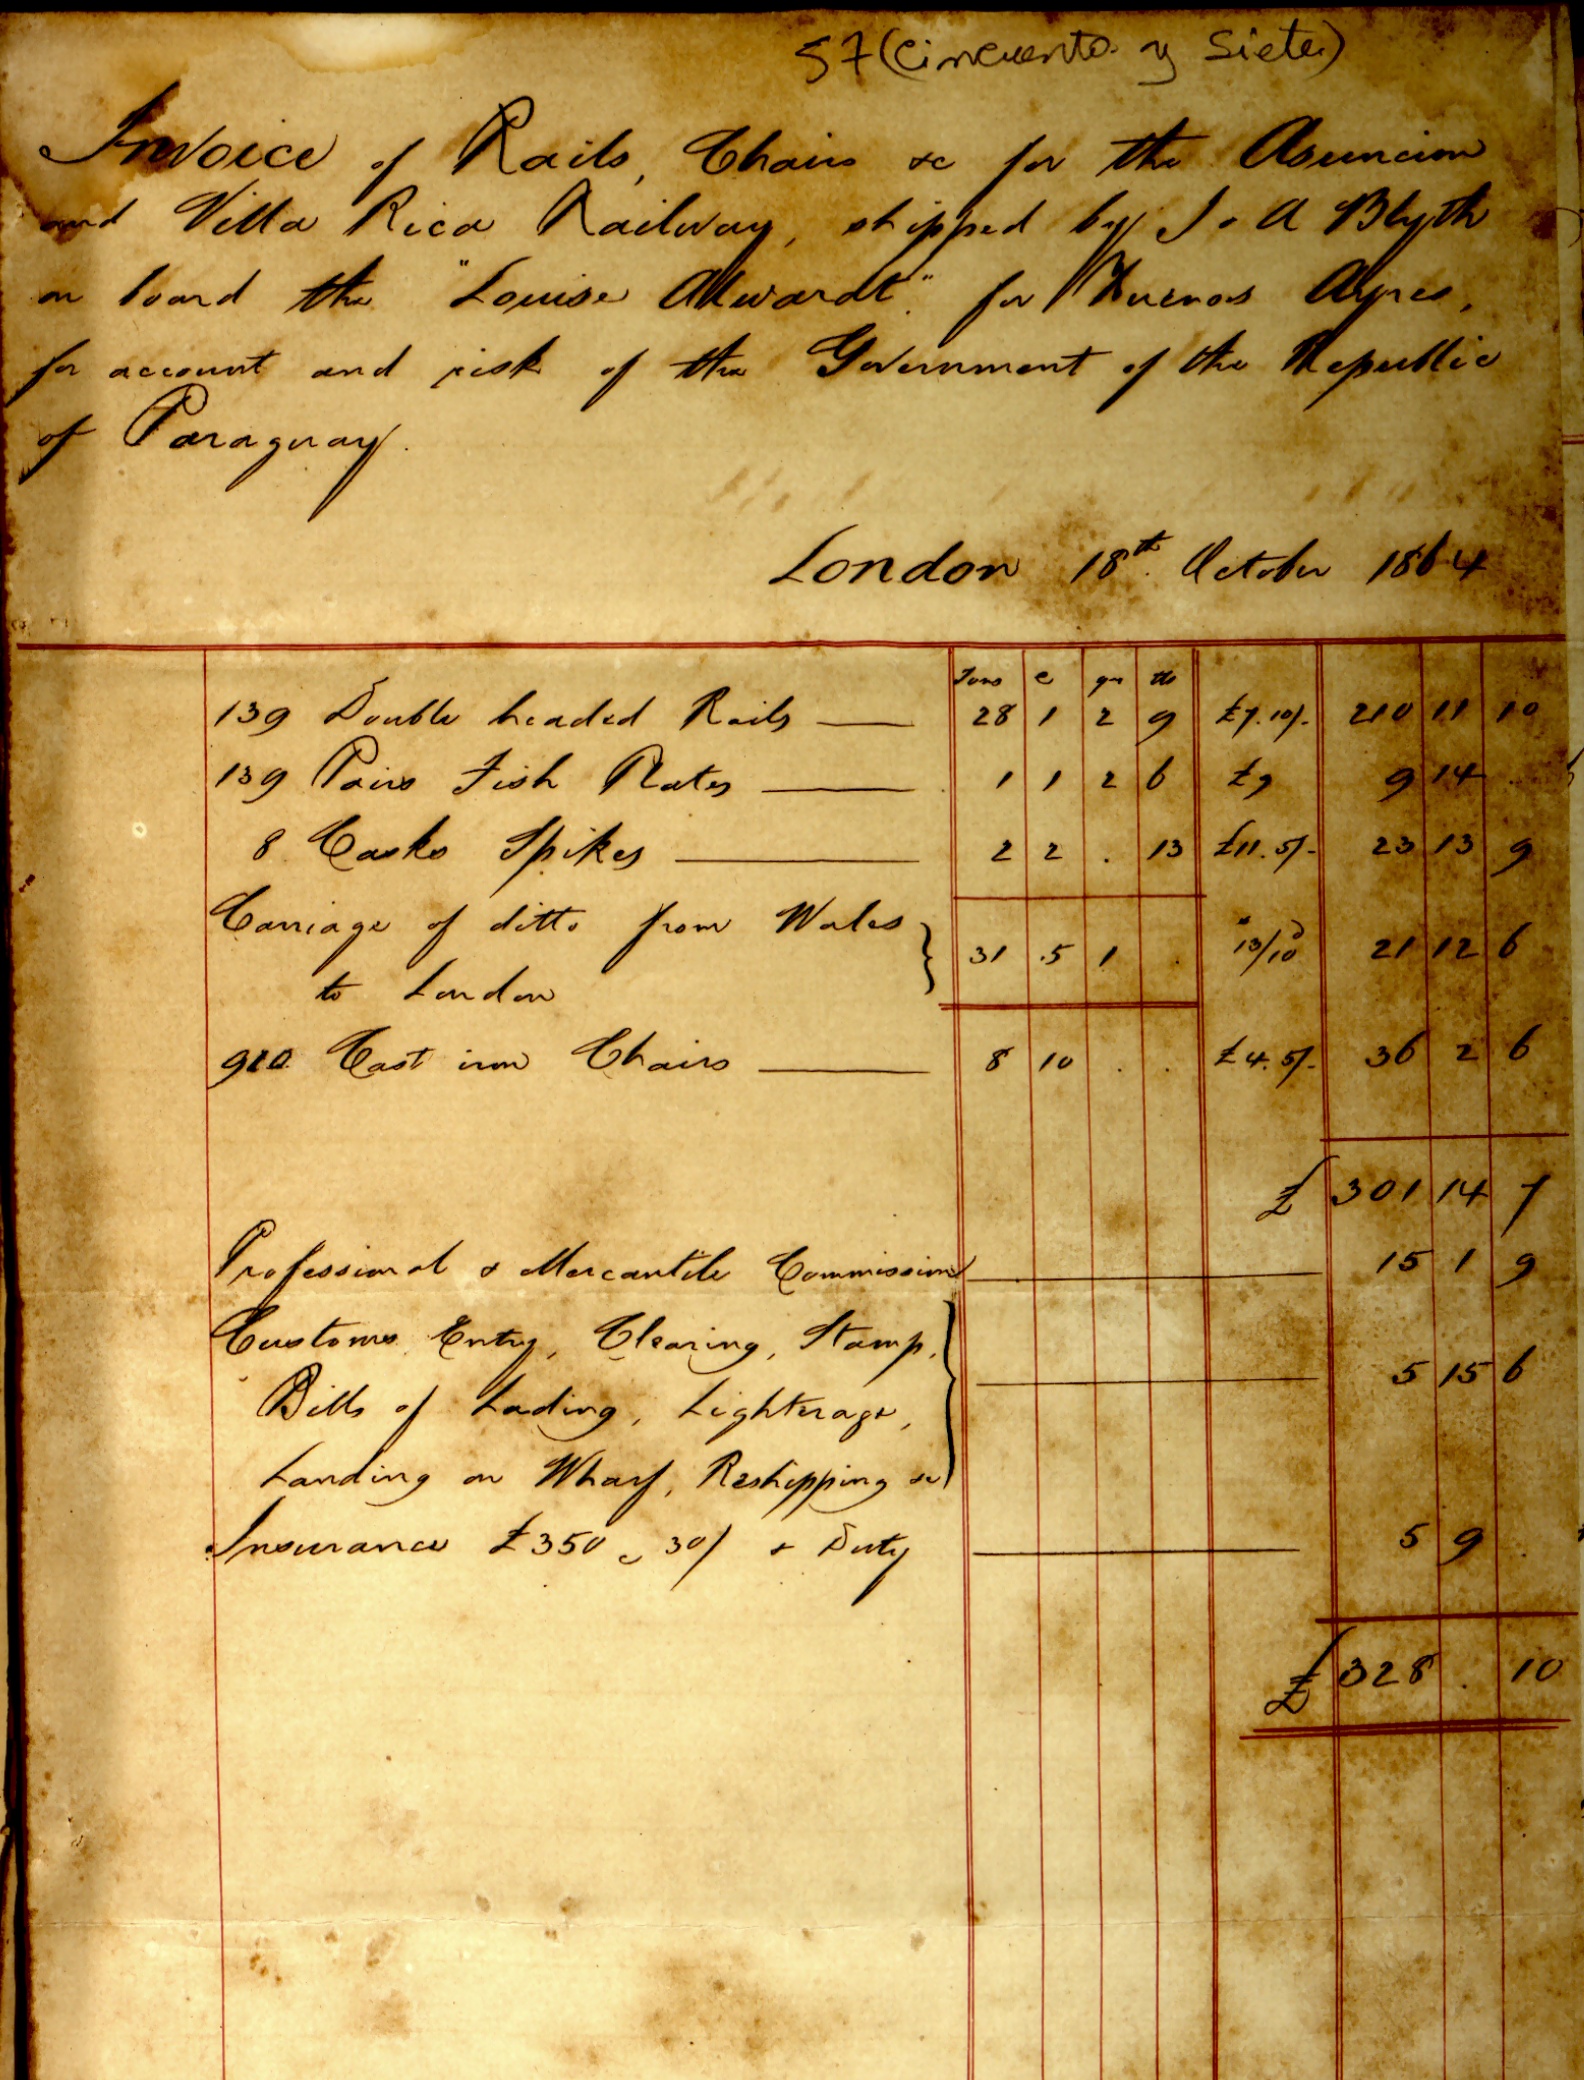 57 (Cincuenta y Siete)
Invoice of Rails, Chairs &c for the Asuncion
and Villa Rica Railway, shipped by J & A Blyth
on board the "Louise Alwardt" for Buenos Ayres,
for account and risk of the Government of the Republic
of Paraguay.
London 18th. October 1864
Tons c qrs lbs
139 Double headed Rails 28 1 2 9 £7.10/- 210 11 10
139 Pairs Fish Plates 1 1 2 6 £9 9 14 .
8 Casks Spikes 2 2 . 13 £11.5/- 23 13 9
Carriage of ditto from Wales
to London 31 5 1 . 13/10 21 12 6
920 Cast iron Chairs 8 10 . . £4.5/- 36 2 6
£ 301 14 7
Professional & Mercantile Commission 15 1 9
Customs Entry, Clearing, Stamp,
Bills of Lading, Lighterage, 5 15 6
Landing on Wharf, Reshipping &c
Insurance £350 @ 30/ & Duty 5 9 .
£ 328 . 10